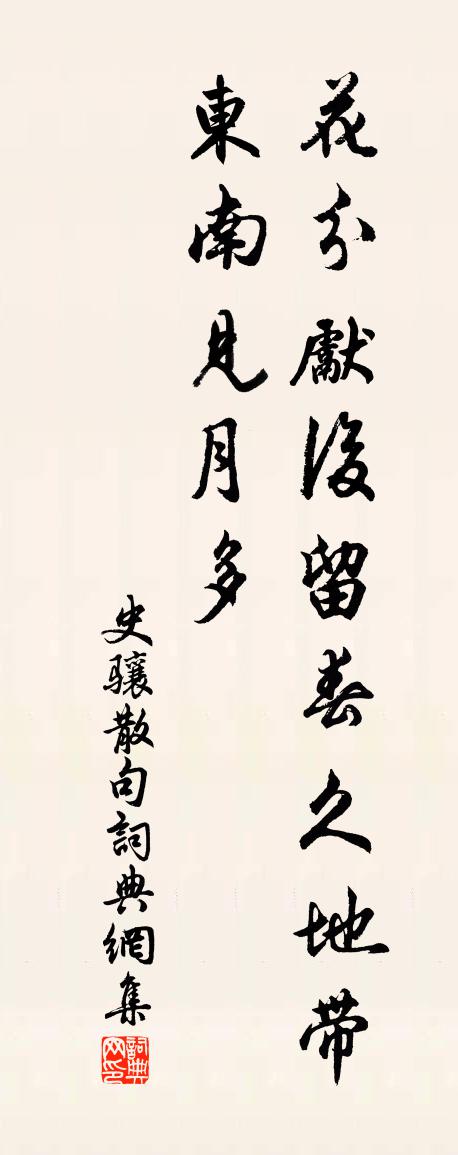 花分獻後留春久地帶
東南見月多
史驤散句詞典網集
詞典网印